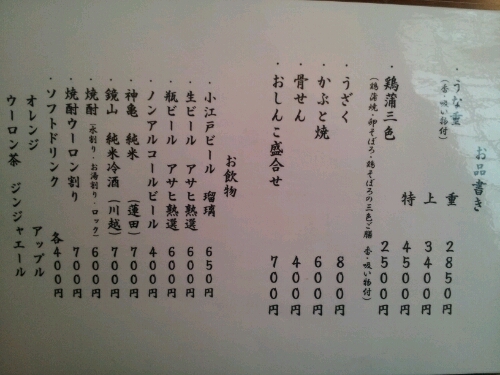 お品書き
・うな重 重 2850円
(香・吸い物付) 上 3400円
特 4500円
・鶏蒲三色 2500円
(鶏蒲焼・卵そぼろ・鶏そぼろの三色ご膳 香・吸い物付)
・うざく 800円
・かぶと焼 600円
・骨せん 400円
・おしんこ盛合せ 700円
お飲物
・小江戸ビール 瑠璃 650円
・生ビール アサヒ熟選 600円
・瓶ビール アサヒ熟選 600円
・ノンアルコールビール 400円
・神亀 純米 (蓮田) 700円
・鏡山 純米冷酒 (川越) 700円
・焼酎 (水割り・お湯割り・ロック) 600円
・焼酎ウーロン割り 700円
・ソフトドリンク 各400円
オレンジ アップル
ウーロン茶 ジンジャエール